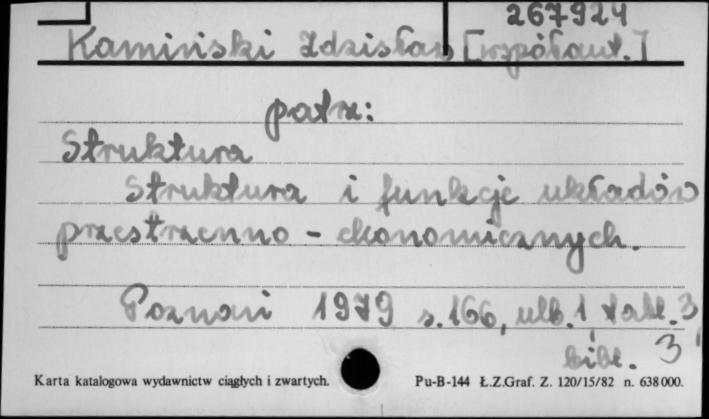 267924
Kamiński Zdzisław [współaut.]
patrz:
Struktura
Struktura i funkcje układów
przestrzenno - ekonomicznych.
Poznań 1979 s. 166, ulb. 1, tabl. 3,
bibl. 3
Karta katalogowa wydawnictw ciągłych i zwartych. Pu-B-144 Ł.Z.Graf. Z. 120/15/82 n. 638 000.